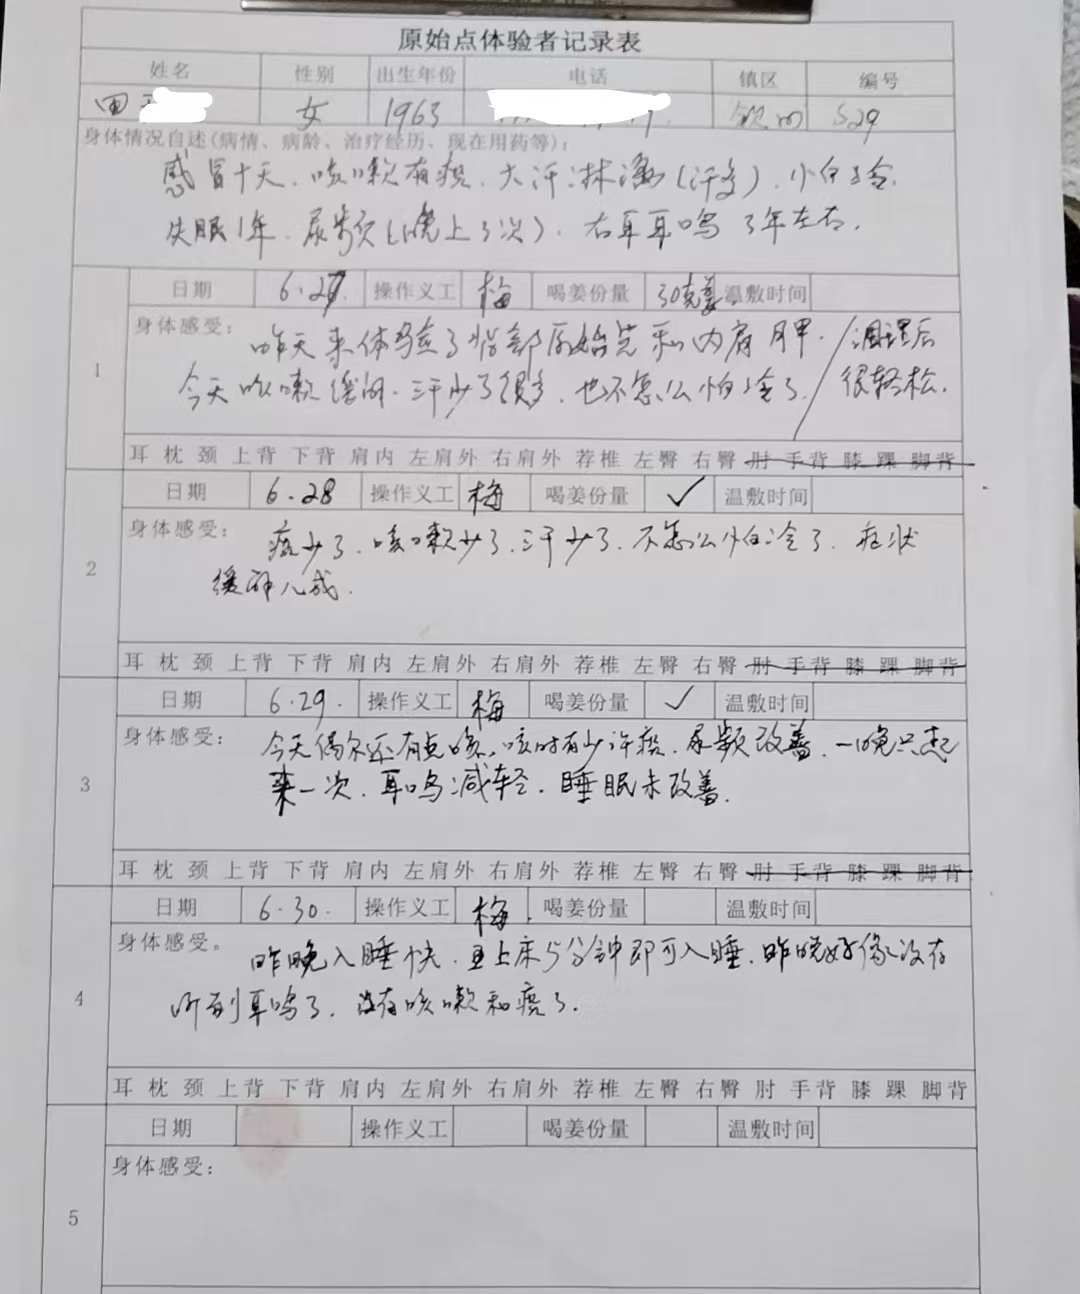 原始点体验者记录表
姓名 性别 出生年份 电话 镇区 编号
田 女 1963 529
身体情况自述(病情、病龄、治疗经历、现在用药等):
感冒十天、咳嗽有痰、大汗淋漓(汗多)、怕冷.
失眠1年、尿频(晚上3次)、右耳耳鸣3年左右.
1
日期 6.27. 操作义工 梅 喝姜份量 30克姜 温敷时间
身体感受: 昨天来体验了背部原始点和内肩胛. / 调理后
今天咳嗽缓解.汗少了很多.也不怎么怕冷了. 很轻松.
耳 枕 颈 上背 下背 肩内 左肩外 右肩外 荐椎 左臀 右臀 肘 手背 膝 踝 脚背
2
日期 6.28 操作义工 梅 喝姜份量 ✓ 温敷时间
身体感受: 痰少了.咳嗽少了.汗少了.不怎么怕冷了.症状
缓解八成.
耳 枕 颈 上背 下背 肩内 左肩外 右肩外 荐椎 左臀 右臀 肘 手背 膝 踝 脚背
3
日期 6.29. 操作义工 梅 喝姜份量 ✓ 温敷时间
身体感受: 今天偶尔还有点咳、咳时有少许痰.尿频改善.一晚只起
来一次.耳鸣减轻.睡眠未改善.
耳 枕 颈 上背 下背 肩内 左肩外 右肩外 荐椎 左臀 右臀 肘 手背 膝 踝 脚背
4
日期 6.30. 操作义工 梅. 喝姜份量 温敷时间
身体感受. 昨晚入睡快.上床5分钟即可入睡.昨晚好像没有
听到耳鸣了.没有咳嗽和痰了.
耳 枕 颈 上背 下背 肩内 左肩外 右肩外 荐椎 左臀 右臀 肘 手背 膝 踝 脚背
5
日期 操作义工 喝姜份量 温敷时间
身体感受: